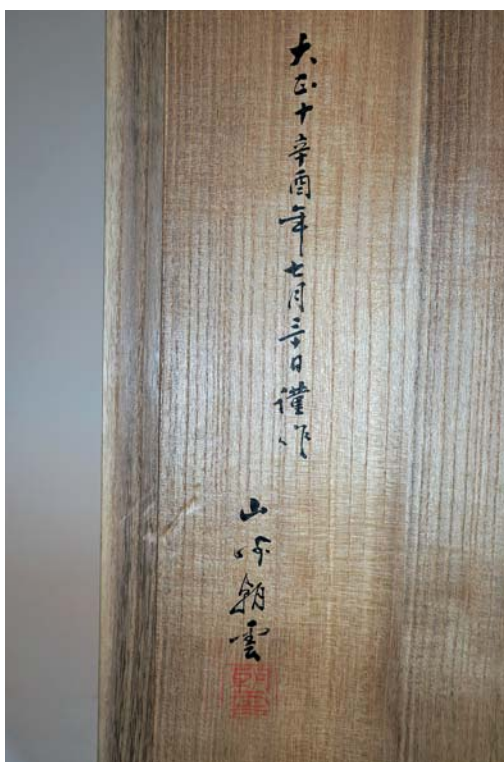 大正十辛酉年七月三十日謹作
山崎朝雲
朝雲